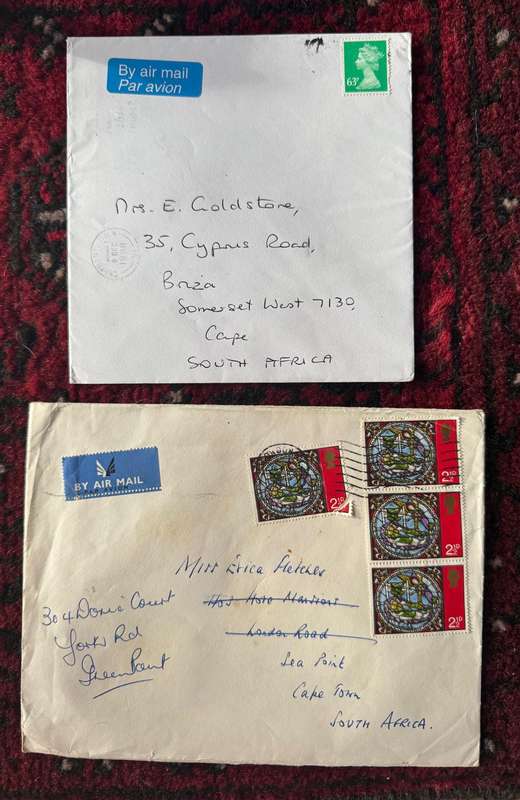 By air mail
Par avion
63P
Mrs. E. Goldstone,
35, Cyprus Road,
Briza
Somerset West 7130,
Cape
SOUTH AFRICA
BY AIR MAIL
2½P
2½P
2½P
2½P
Miss Erica Fletcher
London Road
Sea Point
Cape Town
SOUTH AFRICA.
304 Doric Court
York Rd
Green Point